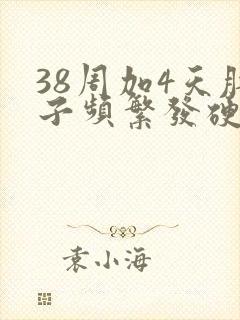 38周加4天肚
子頻繁發硬
袁小海